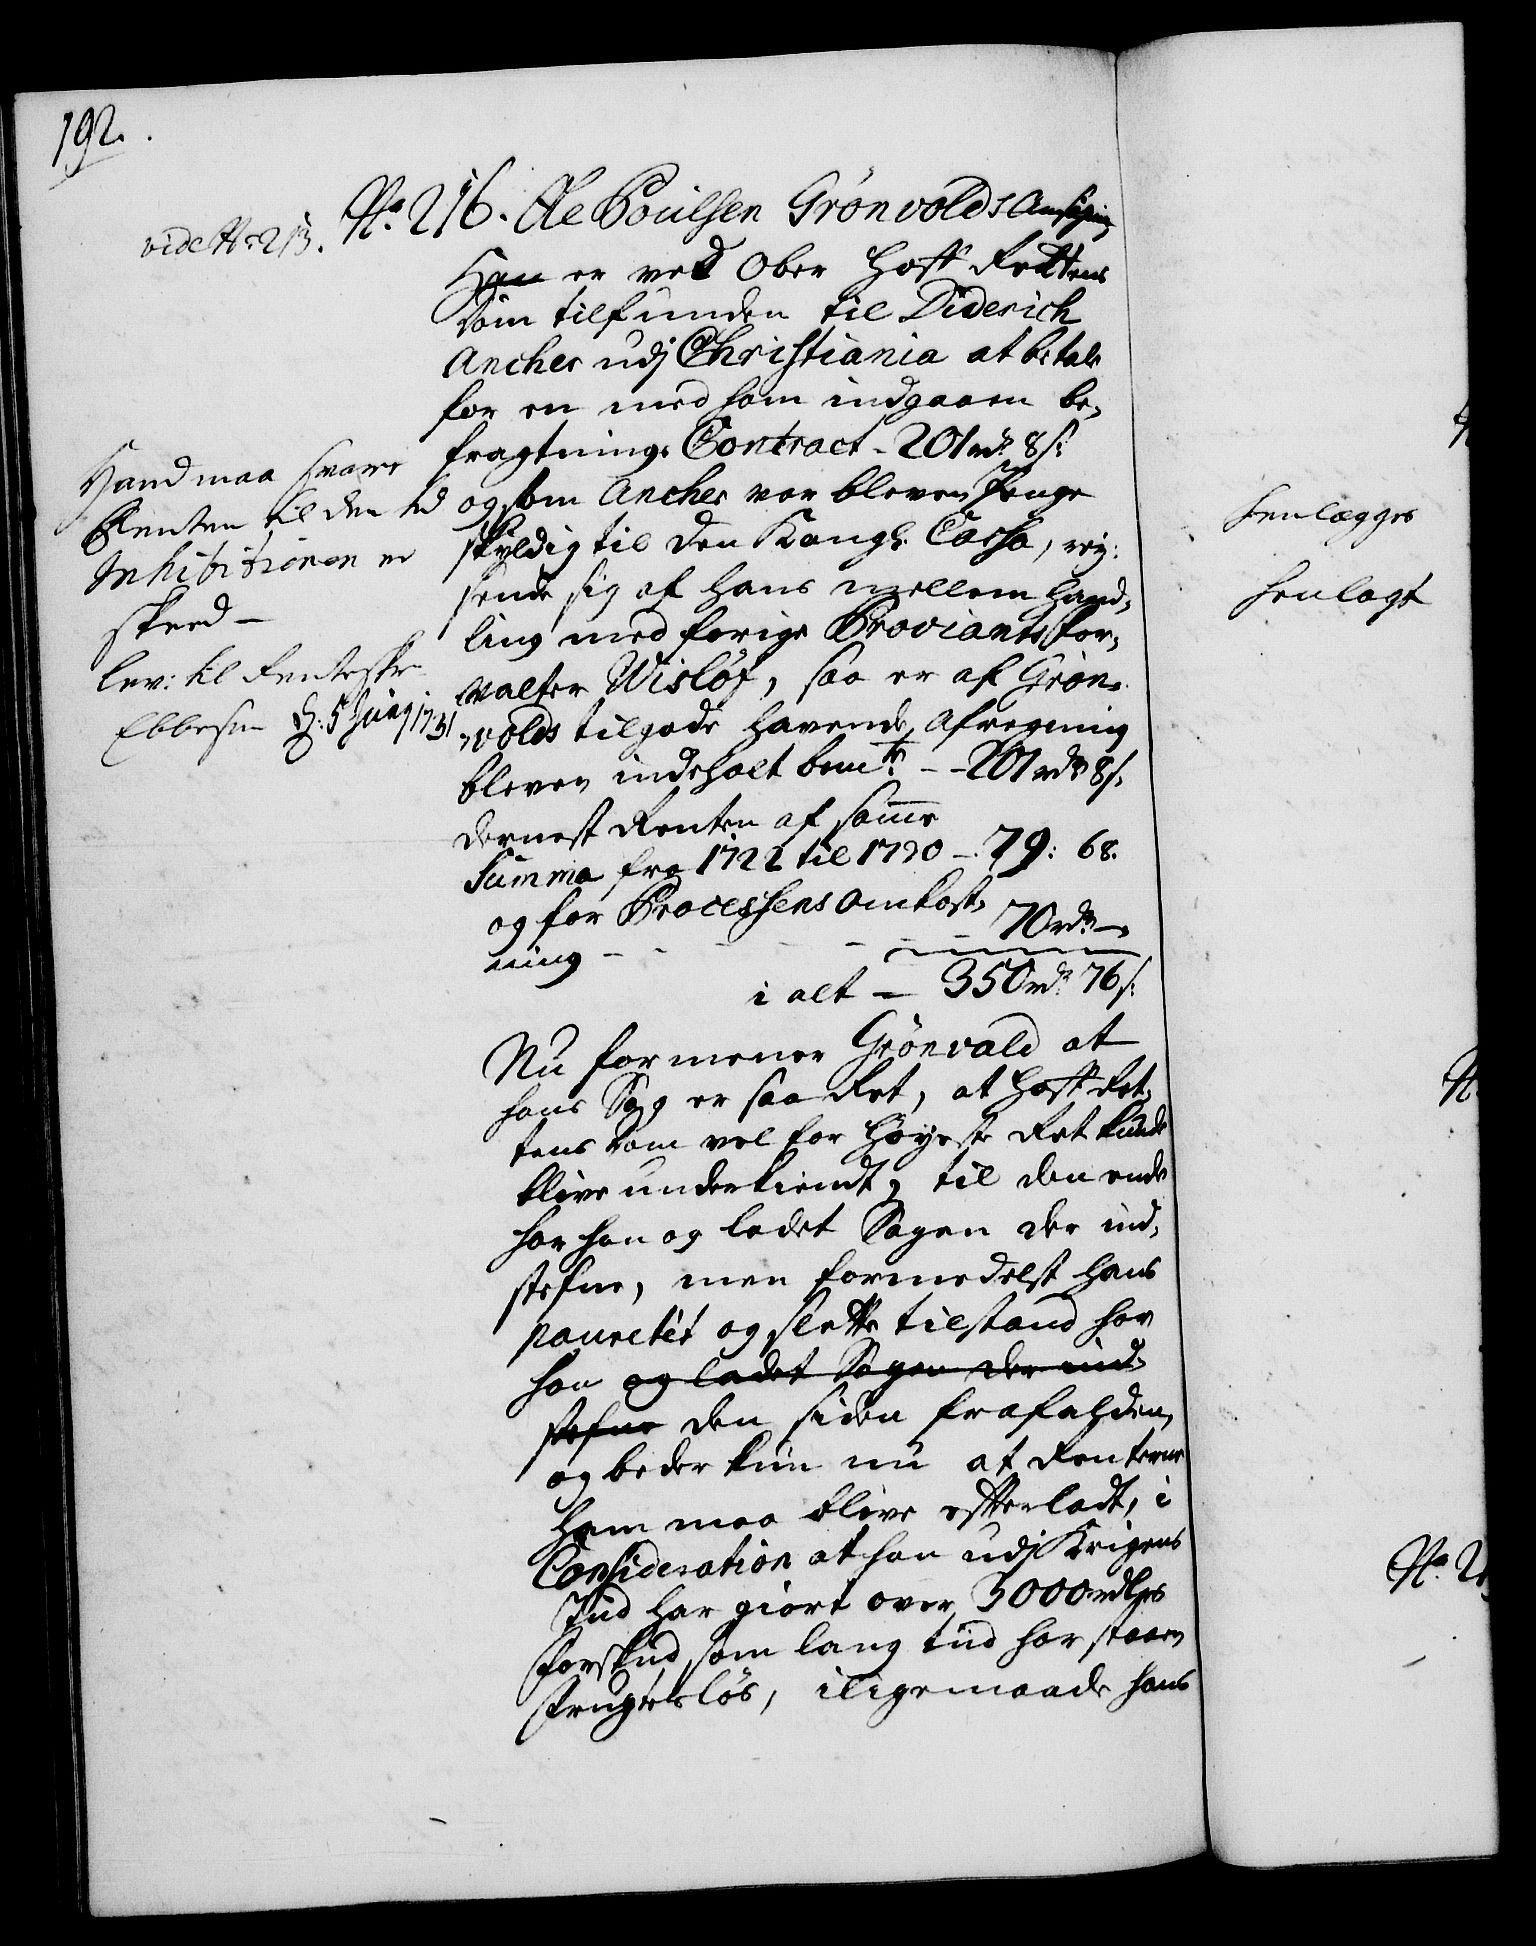 192.
vide No 213.
No. 216. Ole Poulsen Grønvolds Ansøgning
Han er ved Ober Hoff Rettens
Dom tilfunden til Diderich
Ancher udj Christiania at betale
for en med ham indgaaen be,
fragtnings Contract - 201 rdr 8 s:
og som Ancher var bleven Penge
skyldig til den Kongl: Cassa, rey:
sende sig af hans mellem Hand,
ling med forige Proviants for,
valter Wisløf, saa er af Grøn,
volds tilgode havende Afregning
bleven indeholt bemte - - 201 rdr 8 s.
dernest Renten af samme
Summa fra 1722 til 1730 - 79: 68.
og for Processens omkost,
ning - - - - - - 70 rdr -
i alt - 350 rdr 76 s:
Nu formener Grønvold at
hans Sag er saa Ret, at Hoff Ret,
tens Dom vel for Høyeste Ret kunde
blive underkiendt, til den ende
har han og ladet Sagen der ind,
stefne, men formedelst hans
pauvretét og slette tilstand har
han og ladet Sagen der ind,
stefne den siden frafalden,
og beder kun nu at Renterne
ham maa blive efterladt, i
Consideration at han udj Krigens
Tiid har giort over 3000 rdlrs
forskud, som lang tiid har staaen
frugtesløs, iligemaade hans
Hand maa svare
Renten til den tid
Inhibitionen er
skeed -
lev: til Renteskr
Ebbesen d: 5 Juny 1731
henlægges
henlagt
No. 2